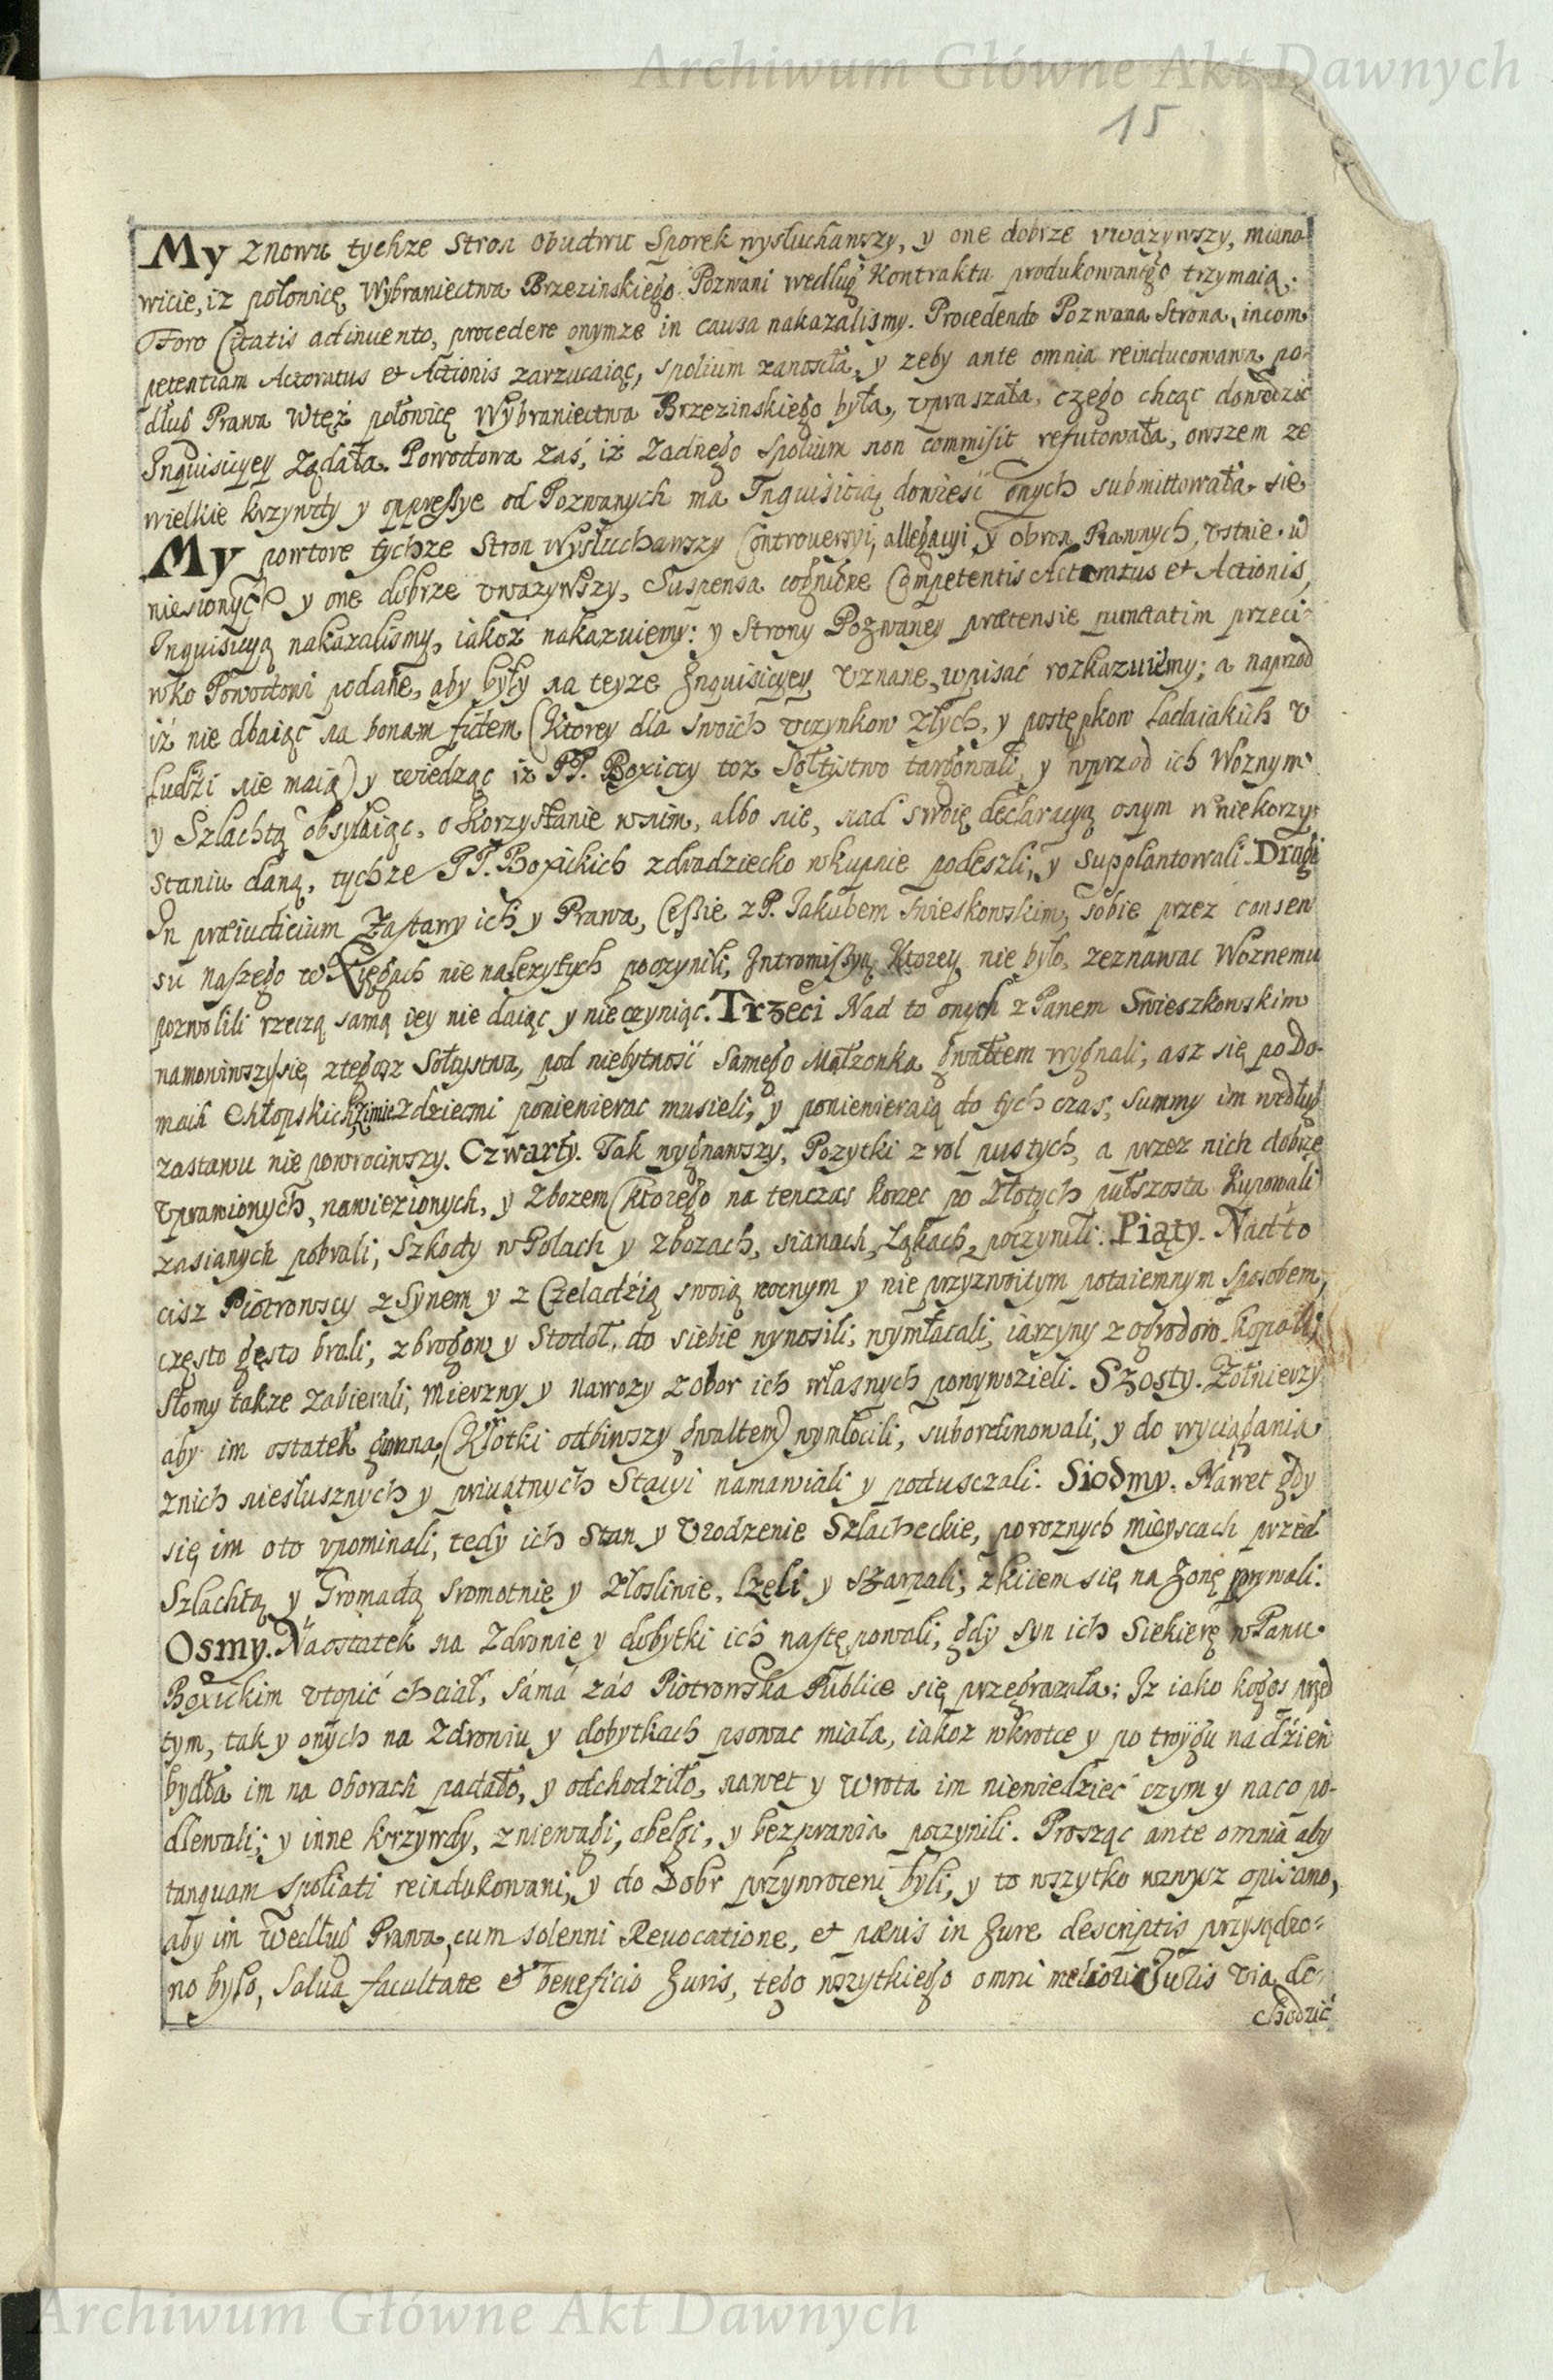 Archiwum Główne Akt Dawnych
15
My znowu tychze Stron obudwu Sporek wysłuchawszy, y one dobrze vważywszy, miano
wicie, iz połowicę Wybraniectwa Brzezinskiego Pozwani według Kontraktu produkowanego trzymaią;
Foro Citatis adinuento, procedere onymze in causa nakazalismy. Procedendo Pozwana Strona, incom
petentiam Actoratus et Actionis zarzucaiąc, spolium zanosiła, y zeby ante omnia reinducowana po-
dług Prawa wtęż połowicę Wybraniectwa Brzezinskiego była, vpraszała, czego chcąc dowodzić
Inquisicyey żądała. Powodowa zaś, iż żadnego spolium non commisit refutowała, owszem ze
wielkie krzywdy y oppressye od Pozwanych ma Inquisitią dowiesć onych submittowała się
My powtore tychże Stron wysłuchawszy Controuersyi, allegacyi, y obron Prawnych, vstnie w
niesionych y one dobrze vwazywszy, Suspensa cognitione Competentis Actoratus et Actionis,
Inquisicyą nakazalismy, iakoż nakazuiemy: y Strony Pozwaney prætensie punctatim przeci
wko Powodowi podane, aby były na teyze Inquisicyey vznane, wpisać rozkazuiemy; a naprzod
iż nie dbaiąc na bonam fidem (Ktorey dla swoich vczynkow złych, y postępkow ladaiakich v
ludźi nie maią) y wiedząc iz PP. Boxiccy toz Sołtystwo targowali, y wprzod ich Woznym
y Szlachtą obsyłaiąc, o Korzystanie wnim, albo nie, nad swoię declaracyą onym w niekorzy
staniu daną, tychze PP. Boxickich zdradziecko wkupnie podeszli, y supplantowali. Drugi
In præiudicium Zastawy ich y Prawa, Cessie z P. Jakubem Swieskowskim, sobie przez consen
su naszego w Xięgach nie nalezytych poczynili, Intromissyą Ktorey nie było, zeznawac Woznemu
pozwolili rzeczą samą iey nie daiąc y nie czyniąc. Trzeci Nad to onych z Panem Swieszkowskim
namowiwszy się, ztegosz Sołtystwa, pod niebytność samego Małzonka gwałtem wygnali, asz się po Do-
mach Chłopskich, zimie z dziecmi poniewierac musieli, y poniewieraią do tych czas, summy im według
zastawu nie powrociwszy. Czwarty. Tak wygnawszy, Pozytki z rol pustych, a przez nich dobrze
vprawionych, nawiezionych, y zbozem (ktorego na tenczas korzec po złotych pułszosta kupowali)
zasianych pobrali, szkody w Polach y zbozach, sianach, Łąkach, poczynili. Piąty. Nad to
cisz Piotrowscy z Synem y z Czeladzią swoią nocnym y nie przyzwoitym potaiemnym sposobem,
często gęsto brali, z brogow y Stodoł, do siebie wynosili, wymłacali, iarzyny z ogrodow kopali,
słomy takze zabierali, mierzwy y nawozy z obor ich własnych powywozieli. Szosty. Żołnierzy
aby im ostatek gumna, (Kłotki odbiwszy gwałtem) wymłocili, subordinowali, y do wyciągania
znich niesłusznych y priuatnych Stacyi namawiali y poduszczali. Siodmy. Nawet gdy
się im oto vpominali, tedy ich Stan y Vrodzenie Szlacheckie, po roznych mieyscach przed
Szlachtą y Gromadą sromotnie y złosliwie, lzeli y szarpali, z kijem się na żonę porywali.
Osmy. Na ostatek na zdrowie y dobytki ich następowali, gdy syn ich Siekierę w Panu
Boxickim vtopić chciał, sáma zás Piotrowska Publice się przegrazała: Iz iako kogos przed
tym, tak y onych na zdrowiu y dobytkach psowac miała, iakoz wkrotce y po troygu na dzień
bydła im na oborach padało, y odchodziło, nawet y wrota im niewiedziec czym y naco po-
dlewali; y inne krzywdy, zniewagi, obelgi, y bezprawia poczynili. Prosząc ante omnia aby
tanquam spoliati reindukowani, y do Dobr przywroceni byli, y to wszytko wzwysz opisano,
aby im według Prawa, cum solenni Reuocatione, et pænis in Jure descriptis przysądzo-
no było, salua facultate et beneficio Juris, tego wszytkiego omni meliori Juris via do-
chodzić
Archiwum Główne Akt Dawnych